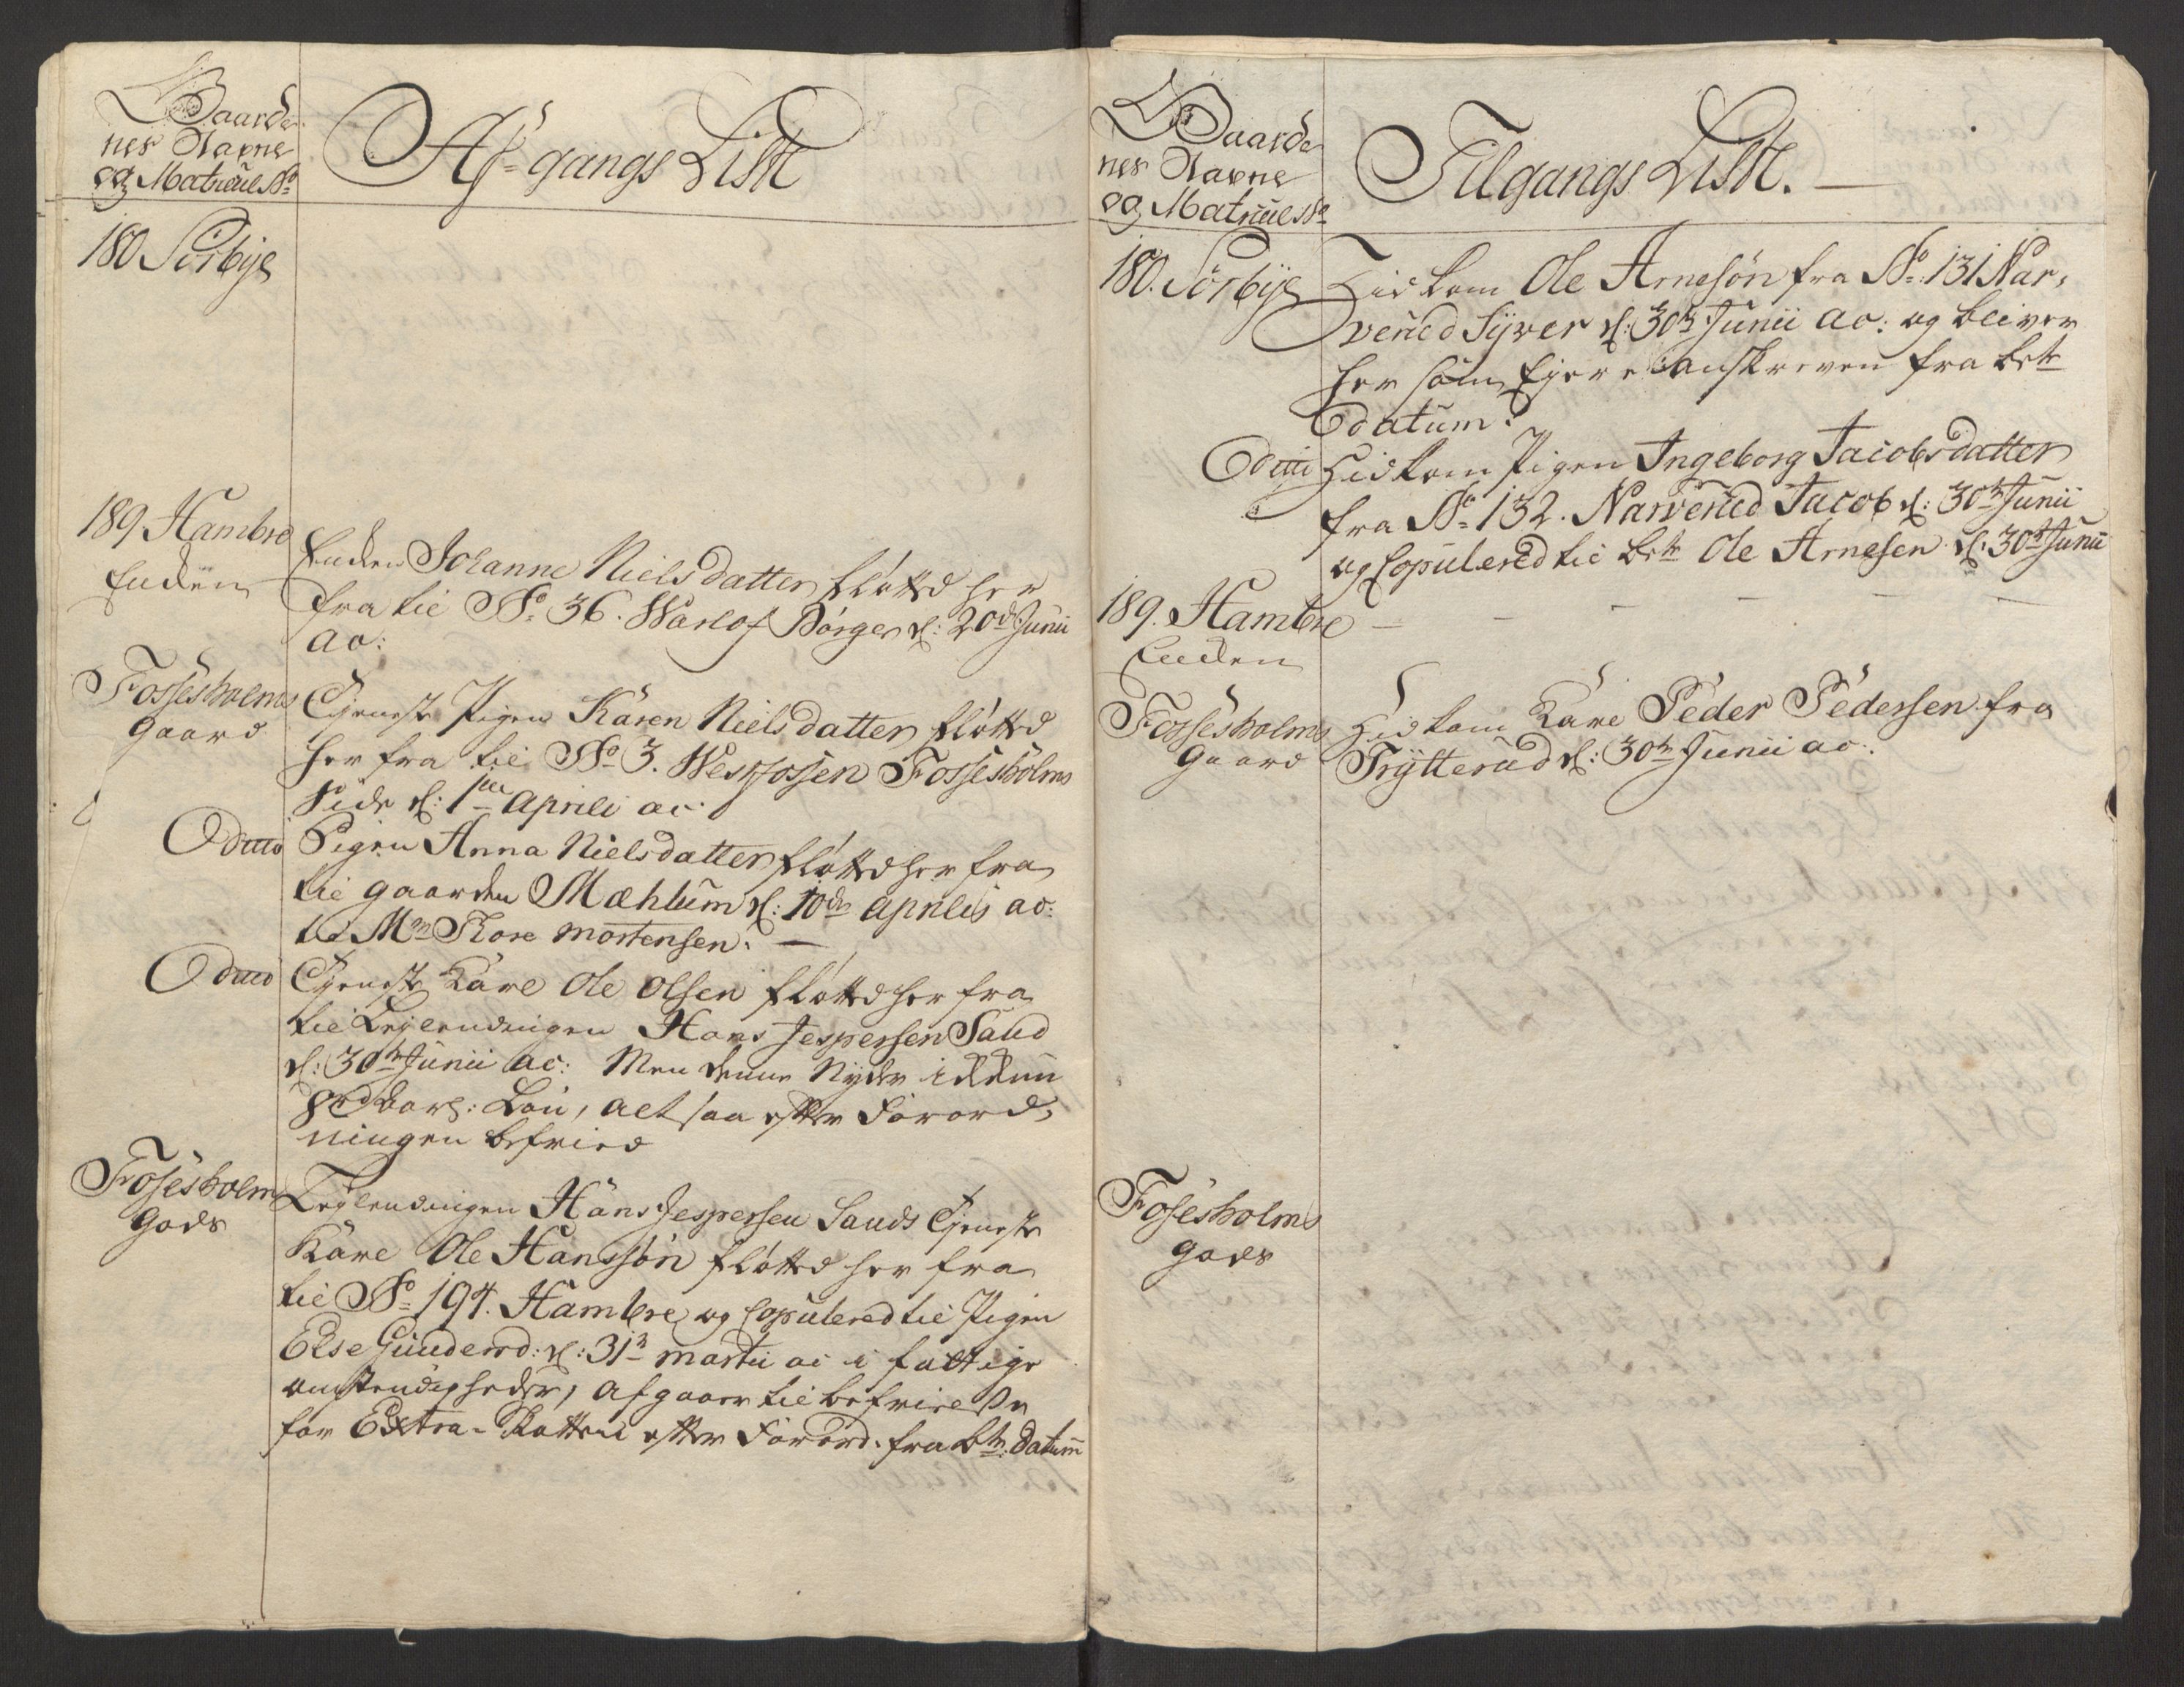 Gaarde
nes Navne
og Matricul No
Af-gangs Liste
180 Sörbye
189 Hambre
Enden
Enken Johanne Nielsdatter fløttet her
fra til No 36. Warlof Börger d: 20de Junii
ao:
Fossesholms
Gaard
Tjeneste Pigen Karen Nielsdatter fløtted
her fra til No 3. Westfossen Fossesholms
Side d: 1ma Aprili ao:
Ditto
Pigen Anna Nielsdatter fløtted her fra
til gaarden Mæhlum d: 10de Aprilis ao:
til Mr Thore Mortensen. —
Ditto
Tjeneste Karl Ole Olsen fløtted her fra
til Leylendingen Hans Jespersen Sand
d: 30te Junii ao: Men denne Nyder ikkun
Lön, alt saa efter Forord-
ningen befried
Fosesholms
Gods
Leylendingen Hans Jespersen Sands Tjeneste
Karl Ole Hanssøn fløtted her fra
til No 194. Hambre og Copulered til Pigen
Else Gundersd: d: 31te Martii ao i fattige
omstendigheder, afgaaer til befrielse
for Extra-Skatten efter Forord. fra bte: Datum
Gaarde
nes Navne
og Matricul No
Tilgangs Liste. —
180. Sörbye
Hid kom Ole Arnesøn fra No: 131 Nar-
verud Syver d: 30te Junii ao: og bliver
her som Ejere anskreven fra bete
datum.
Ditto
Hid kom Pigen Ingeborg Jacobsdatter
fra No 132. Narverud Jacob d: 30te Junii
og Copulered til bete Ole Arnesen d: 30te Junii
189. Hambre — — — — —
Enden
Fossesholms
Gaard
Hid kom Karl Peder Pedersen fra
Trytterud d: 30te Junii ao:
Fosesholms
Gods